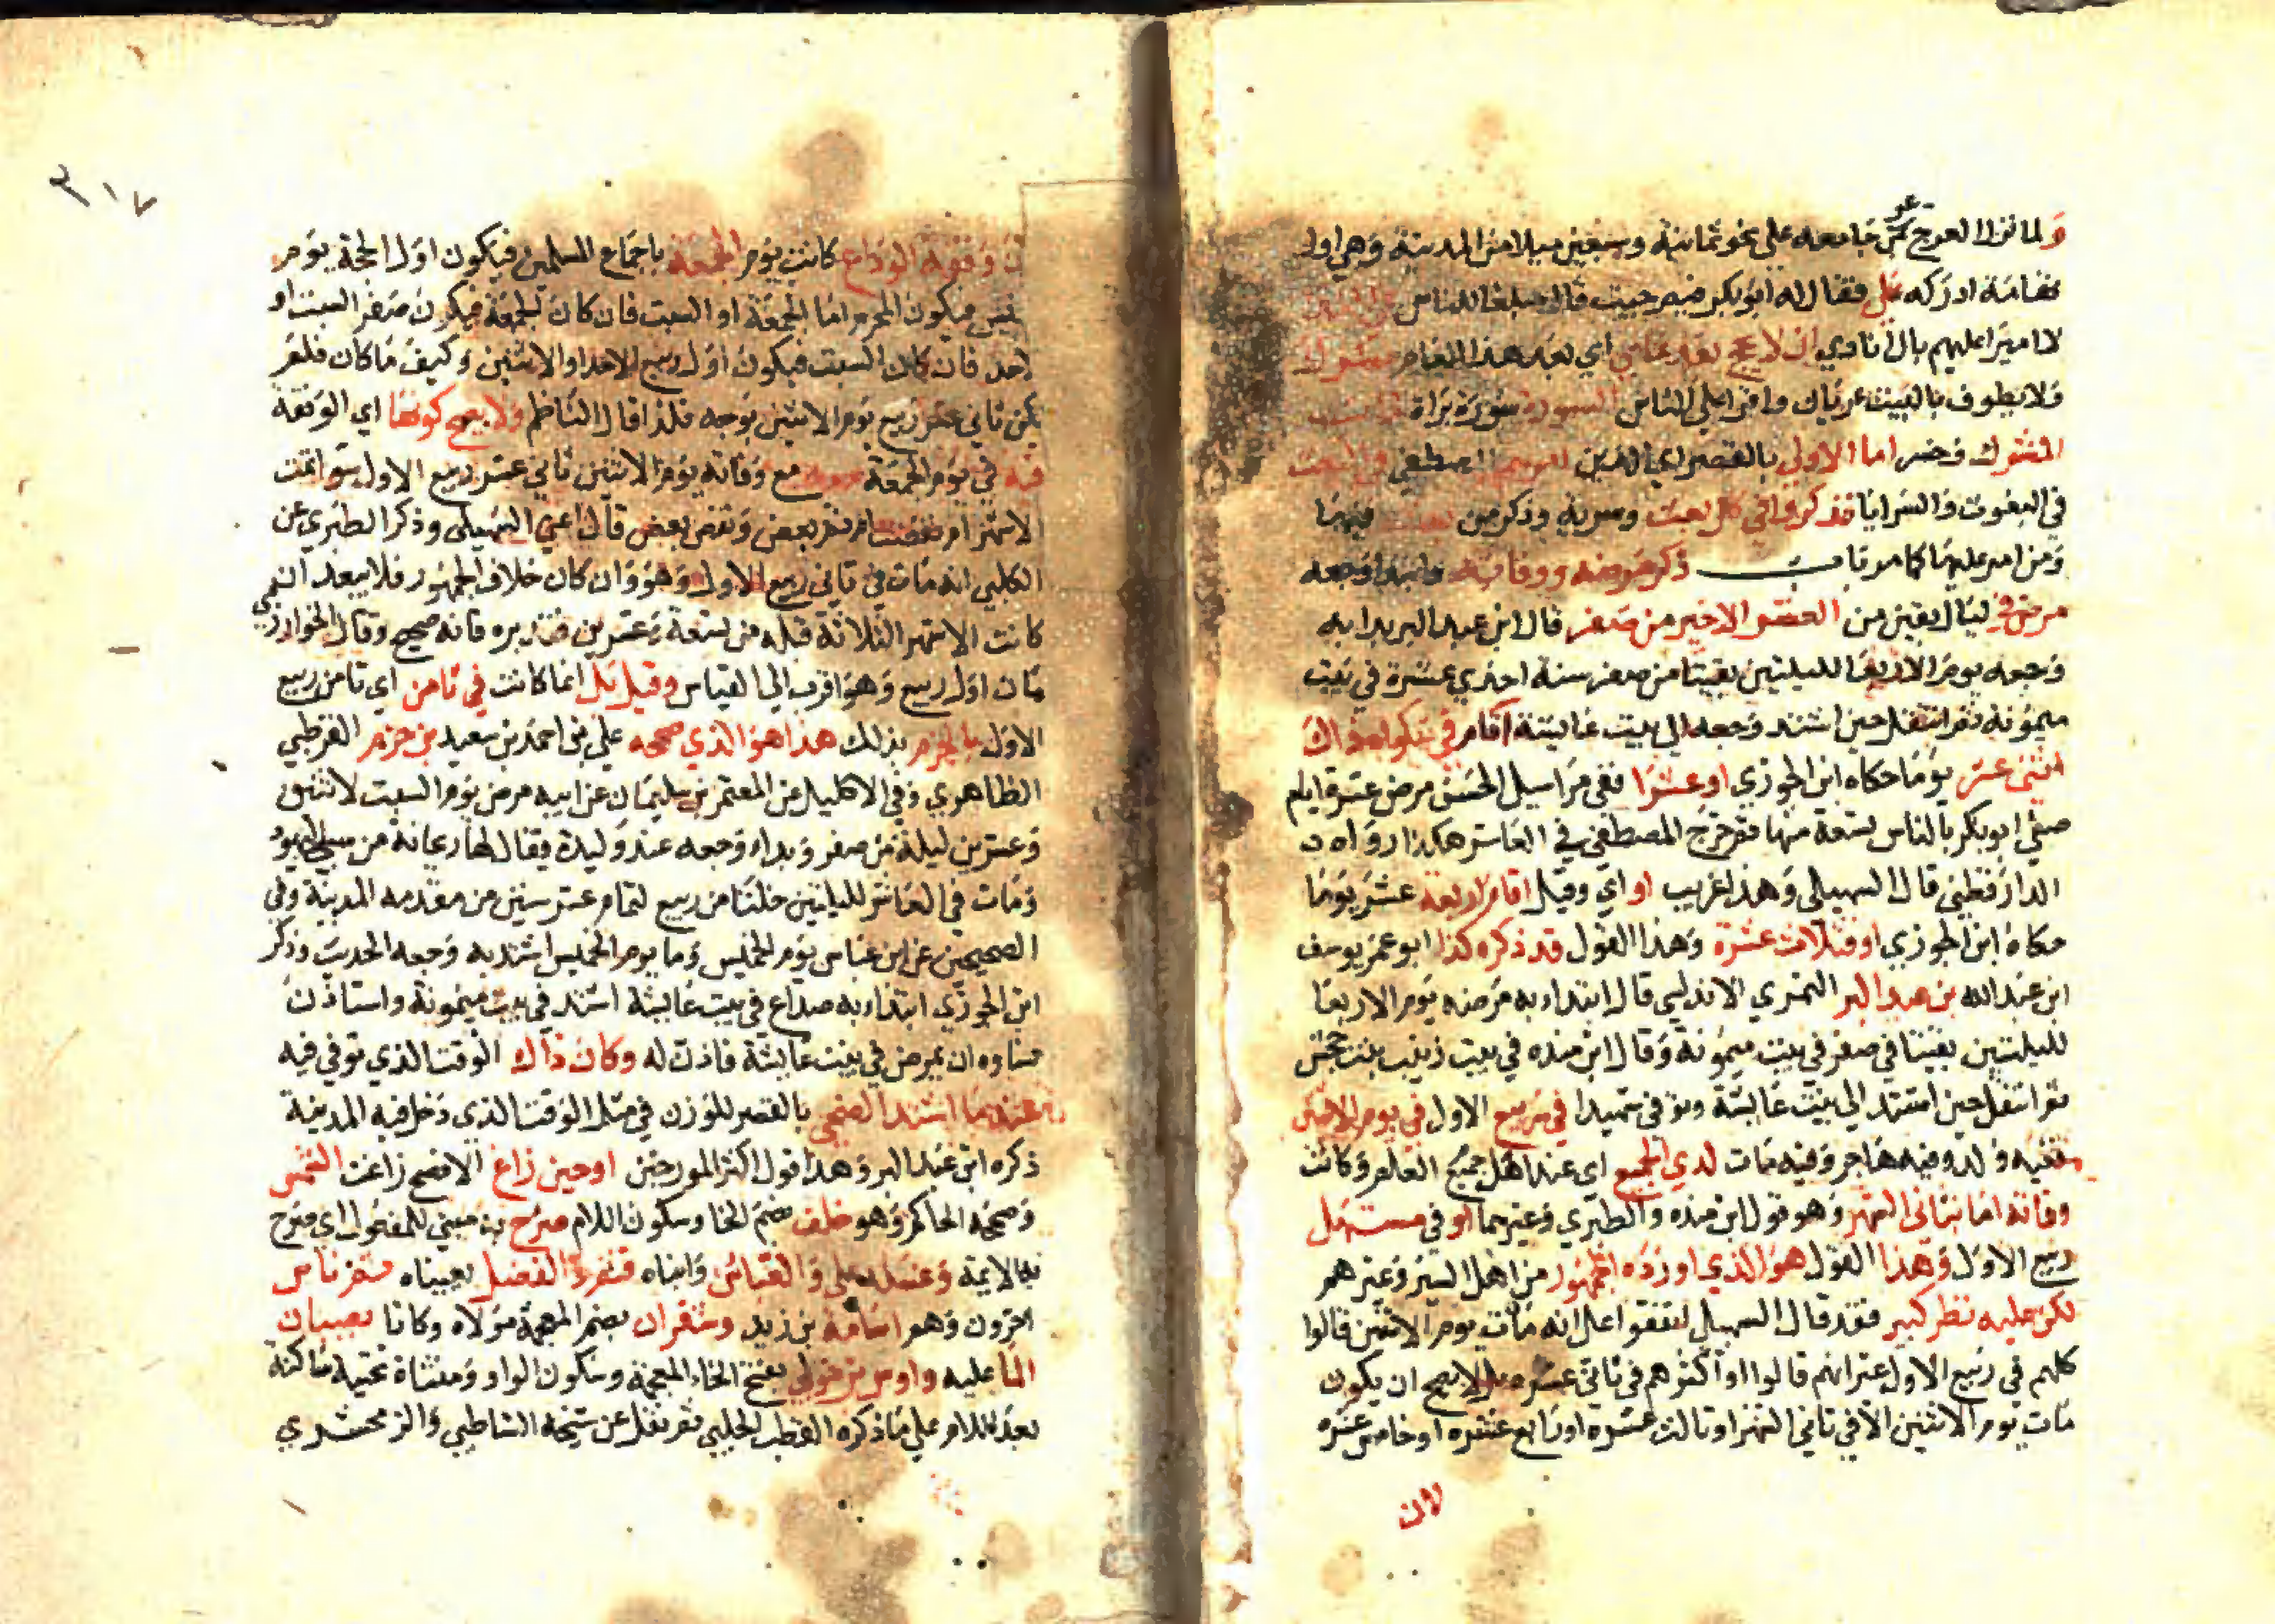 ولما نزلا العرج عن جامعه على نحو ثمانية وسبعين ميلا من المدينة وهي اول
تهامة ادركه علي فقال له ابو بكر فيم جيت قال مبلغا للناس
لا اميرا عليهم بان انادي ان لا يحج بعد عامي اي بعد هذا العام مشرك
ولا يطوف بالبيت عريان واقرا على الناس السورة سورة براة
المشرك وخسر اما الاولى بالقصر اي الذين المصطفى في البعث
في البعوث والسرايا فذكروا في كل بعث وسرية وذكر من بعث فيهما
ومن امر عليها كما مر باب ذكر مرضه ووفاته وابتدا وجعه
مرض في ليال بقين من العشر الاخير من صفر قال ابن عبد البر بدا به
وجعه يوم الاربعا لليلتين بقيتا من صفر سنة احدى عشرة في بيت
ميمونة ثم انتقل حين اشتد وجعه الى بيت عايشة اقام في شكواه ذاك
اثني عشر يوما حكاه ابن الجوزي او عشرا ففي مراسيل الحسن مرض عشرة ايام
صلى ابو بكر بالناس تسعة منها فخرج المصطفى في العاشر هكذا رواه
الدارقطني قال السهيلي وهذا غريب او اي وقيل اقام اربعة عشر يوما
حكاه ابن الجوزي او فثلاث عشرة وهذا القول قد ذكره كذا ابو عمر يوسف
ابن عبد الله بن عبد البر النمري الاندلسي قال ابتدا به مرضه يوم الاربعا
لليلتين بقيتا في صفر في بيت ميمونة وقال ابن منده في بيت زينب بنت جحش
ثم انتقل حين اشتد الى بيت عايشة وتوفي شهيدا في ربيع الاول في يوم الاثنين
ففيه ولد وفيه هاجر وفيه مات لدى الجميع اي عند اهل جميع العلم وكانت
وفاته اما بثاني الشهر وهو قول ابن منده والطبري وغيرهما او في مستهل
ربيع الاول وهذا القول هو الذي اورده الجمهور من اهل السير وغيرهم
لكن عليه نظر كبير فقد قال السهيلي اتفقوا على انه مات يوم الاثنين قالوا
كلهم في ربيع الاول غير انهم قالوا او اكثرهم في ثاني عشره ولا يصح ان يكون
مات يوم الاثنين الا في ثاني الشهر او ثالث عشره او رابع عشره او خامس عشره
لان
٣١٧
وقفة الوداع كانت يوم الجمعة باجماع المسلمين فيكون اول الحجة يوم
فيكون المحرم اما الجمعة او السبت فان كان الجمعة فيكون صفر السبت او
احد فان كان السبت فيكون اول ربيع الاحد او الاثنين وكيف ما كان فلم
يكن ثاني عشر ربيع يوم الاثنين بوجه فلذا قال الناظم ولا يصح كونها اي الوقفة
فيه في يوم الجمعة مع وفاته يوم الاثنين ثاني عشر ربيع الاول سوا تمت
الاشهر ام نقصت ام تم بعض ونقص بعض قال اعني السهيلي وذكر الطبري عن
الكلبي انه مات في ثاني ربيع الاول وهو وان كان خلاف الجمهور فلا يبعد ان
كانت الاشهر الثلاثة قبله من تسعة وعشرين فتدبره فانه صحيح وقال الخوارزمي
مات اول ربيع وهو اقرب الى القياس وقيل بل انما كانت في ثامن اي ثامن ربيع
الاول بالجزم بذلك هذا هو الذي صححه علي بن احمد بن سعيد بن حزم القرطبي
الظاهري وفي الاكليل عن المعتمر بن سليمان عن ابيه مرض يوم السبت لاثنين
وعشرين ليلة من صفر وبداه وجعه عند وليدة يقال لها ريحانة من سبي اليهود
ومات في العاشر لليلتين خلتا من ربيع لتمام عشر سنين من مقدمه المدينة وفي
الصحيحين عن ابن عباس يوم الخميس وما يوم الخميس اشتد به وجعه الحديث وذكر
ابن الجوزي ابتداء به صداع في بيت عايشة اشتد في بيت ميمونة واستاذن
نساوه ان يمرض في بيت عايشة فاذن له وكان ذاك الوقت الذي توفي فيه
عند ما اشتد الضحى بالقصر للوزن في مثل الوقت الذي دخل فيه المدينة
ذكره ابن عبد البر وهذا قول اكثر المورخين او حين زاغ الافصح زاغت الشمس
وصححه الحاكم وهو خلف بضم الخا وسكون اللام صرح به مبني للمفعول اي صرح
به الايمة وغسله علي والعباس وابناه قثم والفضل يعيناه ثم ناس
اخرون وهم اسامة بن زيد وشقران بضم المهمة مولاه وكانا يصبان
الما عليه واوس بن خولي بفتح الخاء المعجمة وسكون الواو ومثناة تحتيه ساكنة
بعد اللام على ما ذكره القطب الحلبي ثم نقل عن شيخه الشاطبي والزمخشري